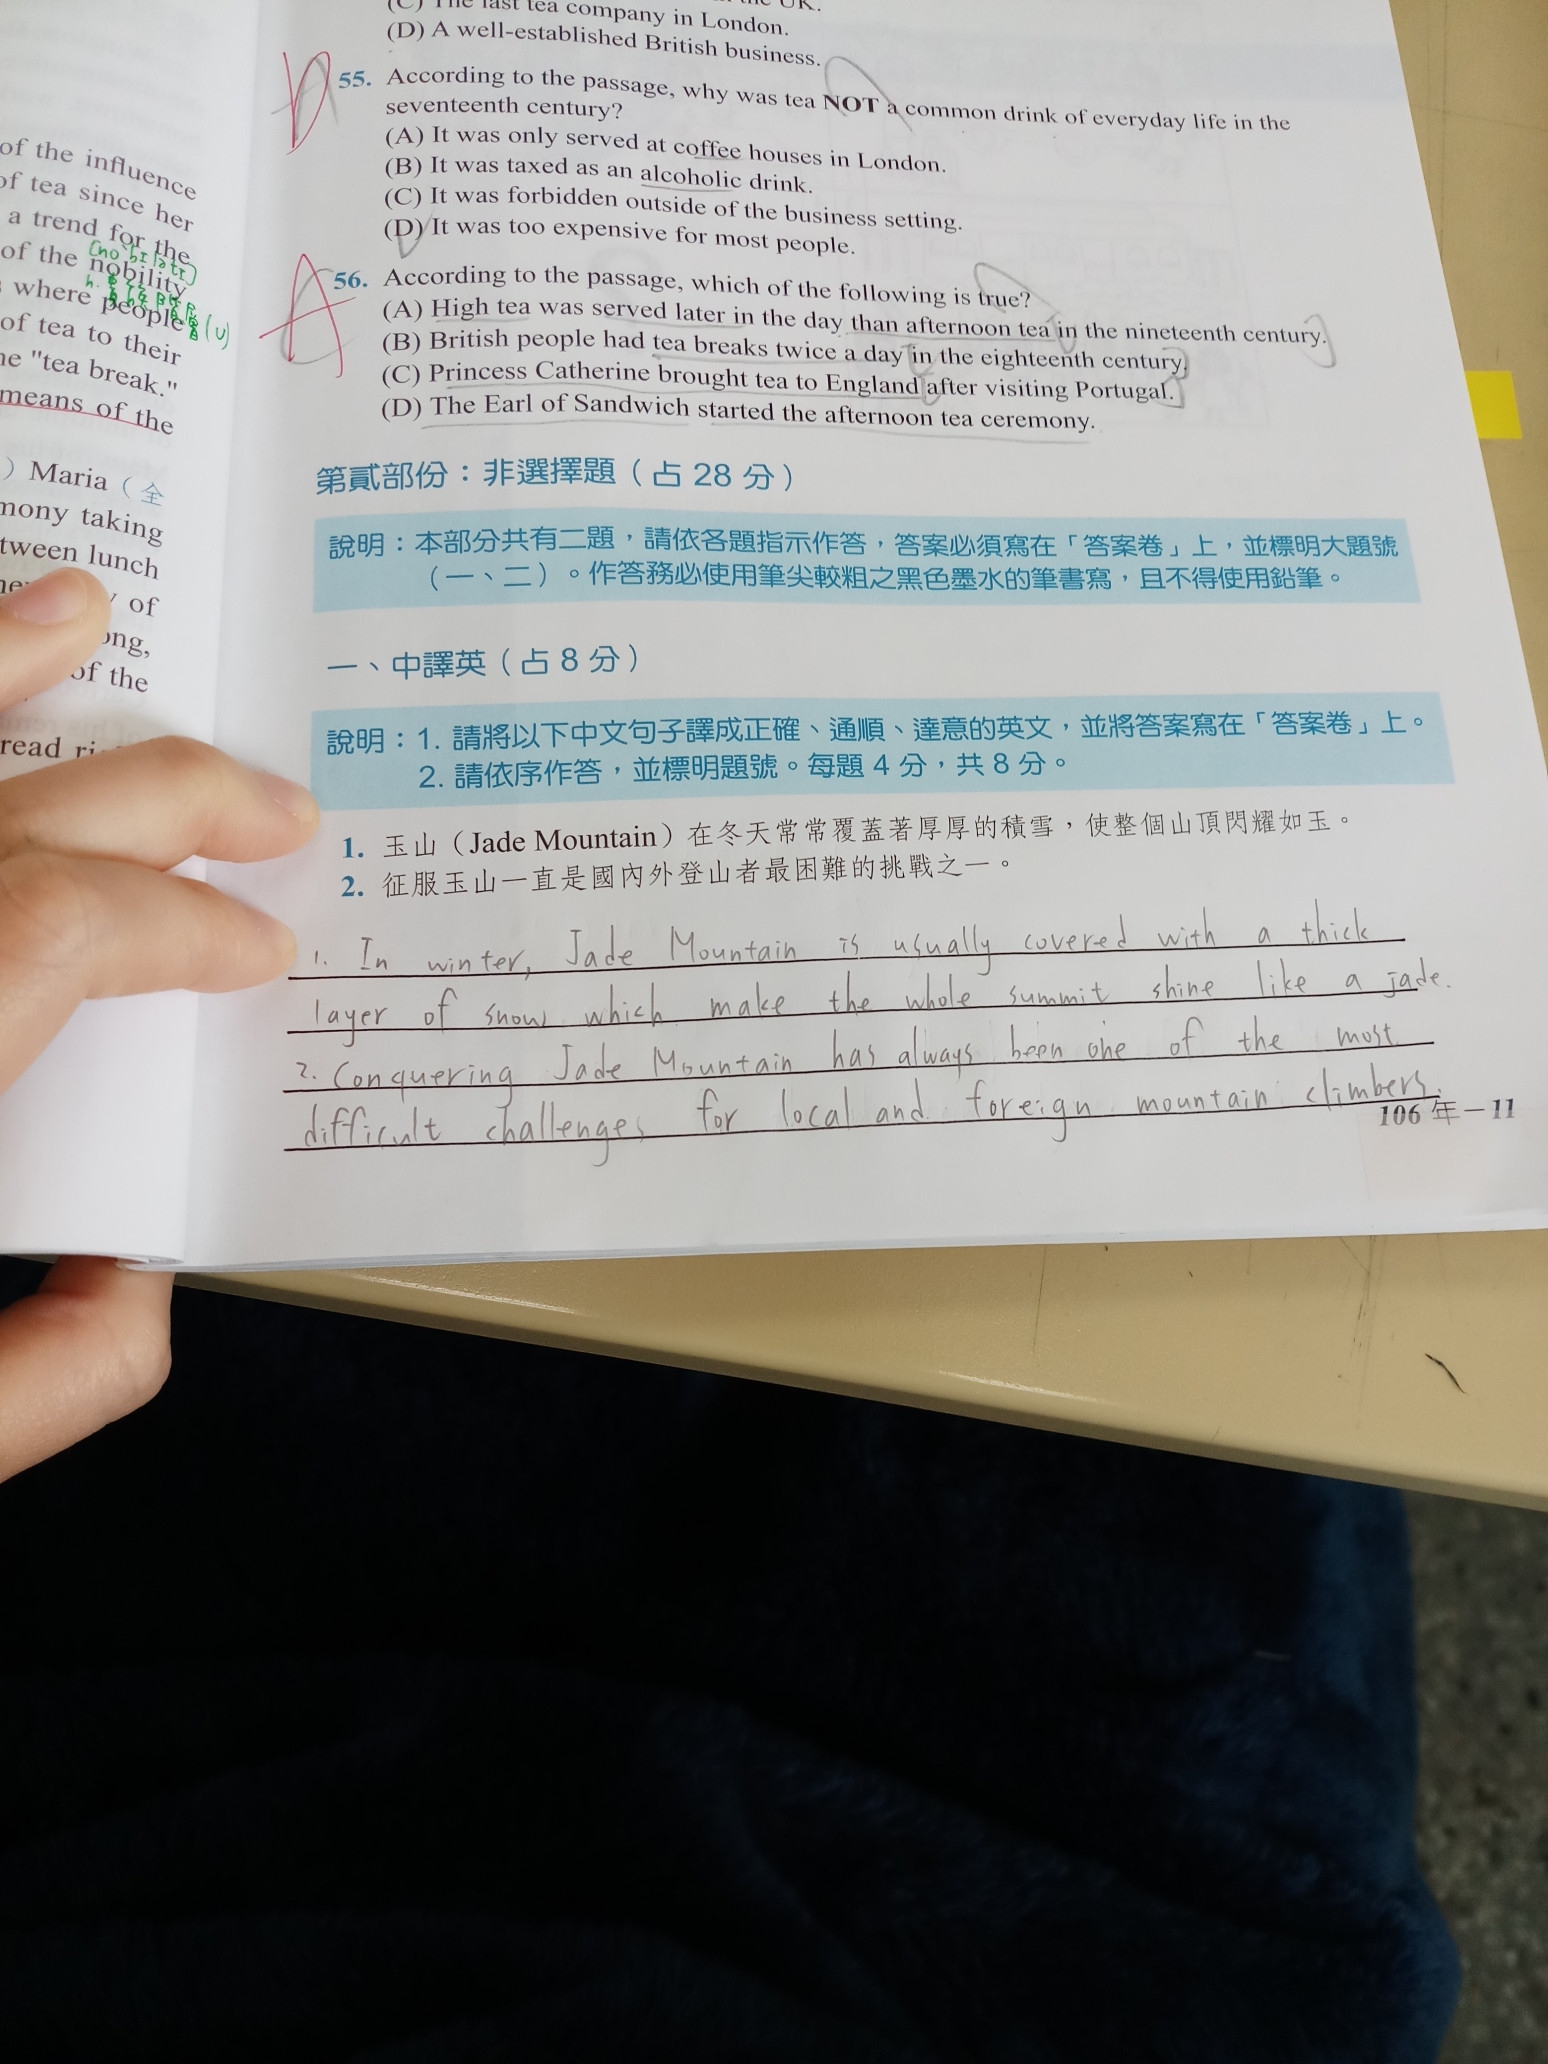 (C) The last tea company in London.
(D) A well-established British business.
55. According to the passage, why was tea NOT a common drink of everyday life in the
seventeenth century?
(A) It was only served at coffee houses in London.
(B) It was taxed as an alcoholic drink.
(C) It was forbidden outside of the business setting.
(D) It was too expensive for most people.
56. According to the passage, which of the following is true?
(A) High tea was served later in the day than afternoon tea in the nineteenth century.
(B) British people had tea breaks twice a day in the eighteenth century.
(C) Princess Catherine brought tea to England after visiting Portugal.
(D) The Earl of Sandwich started the afternoon tea ceremony.
D
A
of the influence
of tea since her
a trend for the
of the nobility
where people
of tea to their
"tea break."
means of the
) Maria (全
taking
lunch
of
of the
read
第貳部份:非選擇題(占 28 分)
說明:本部分共有二題,請依各題指示作答,答案必須寫在「答案卷」上,並標明大題號
(一、二)。作答務必使用筆尖較粗之黑色墨水的筆書寫,且不得使用鉛筆。
一、中譯英(占 8 分)
說明:1. 請將以下中文句子譯成正確、通順、達意的英文,並將答案寫在「答案卷」上。
2. 請依序作答,並標明題號。每題 4 分,共 8 分。
1. 玉山(Jade Mountain)在冬天常常覆蓋著厚厚的積雪,使整個山頂閃耀如玉。
2. 征服玉山一直是國內外登山者最困難的挑戰之一。
1. In winter, Jade Mountain is usually covered with a thick
layer of snow which make the whole summit shine like a jade.
2. Conquering Jade Mountain has always been one of the most
difficult challenges for local and foreign mountain climbers.
106 年-11